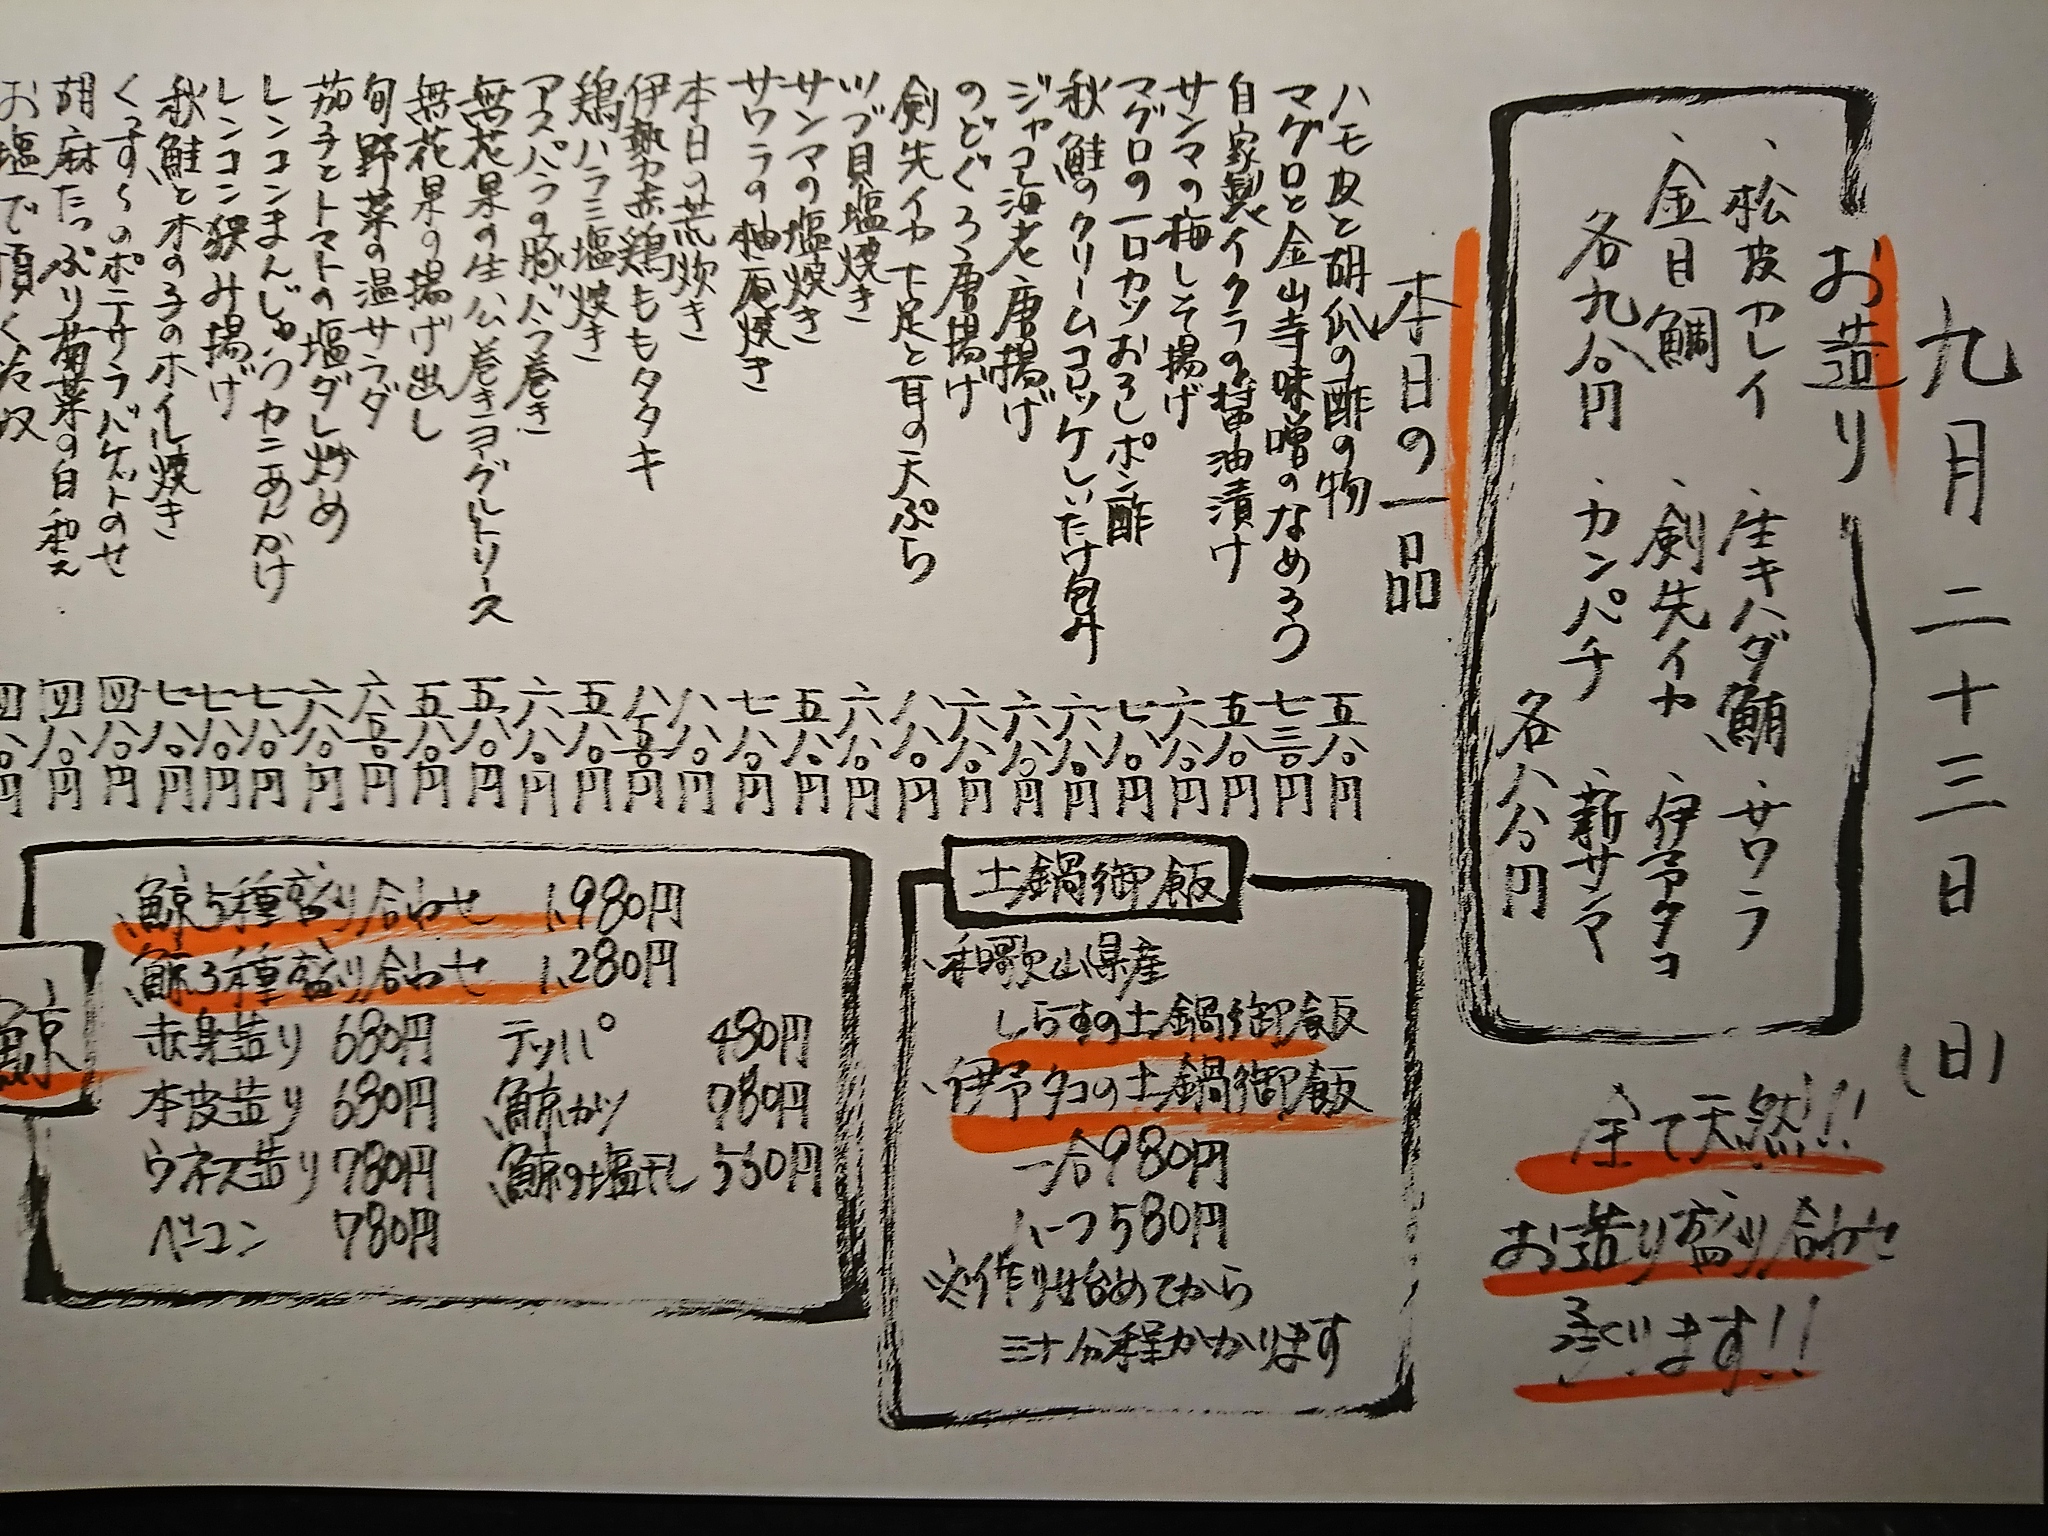 九月二十三日(日)
お造り
・松皮カレイ
・金目鯛
各九八〇円
・生キハダ鮪
・サワラ
・剣先イカ
・伊予タコ
・カンパチ
・新サンマ
各八八〇円
全て天然!!
お造り盛り合わせ
承ります!!
本日の一品
ハモ皮と胡瓜の酢の物 五八〇円
マグロと金山寺味噌のなめろう 七三〇円
自家製イクラの醤油漬け 五八〇円
サンマの梅しそ揚げ 六八〇円
マグロの一口カツおろしポン酢 七八〇円
秋鮭のクリームコロッケしいたけ包み 六八〇円
ジャコ海老唐揚げ 六八〇円
のどぐろ唐揚げ 六八〇円
剣先イカ下足と耳の天ぷら 八八〇円
ツブ貝塩焼き 六八〇円
サンマの塩焼き 五八〇円
サワラの柚庵焼き 七八〇円
本日の荒炊き 八八〇円
伊勢赤鶏ももタタキ 八五〇円
鶏ハラミ塩焼き 五八〇円
アスパラの豚バラ巻き 六八〇円
無花果の生ハム巻きヨーグルトソース 五八〇円
無花果の揚げ出し 五八〇円
旬野菜の温サラダ 六五〇円
茄子とトマトの塩ダレ炒め 六八〇円
レンコンまんじゅうカニあんかけ 七八〇円
レンコン挟み揚げ 七八〇円
秋鮭と木の子のホイル焼き 七八〇円
くっす〜のポテサラバケットのせ 四八〇円
胡麻たっぷり菊菜の白和え 四八〇円
お塩で頂く冷奴 四八〇円
土鍋御飯
・和歌山県産
しらすの土鍋御飯
・伊予タコの土鍋御飯
一合980円
ハーフ580円
※作り始めてから
三十分程かかります
鯨
鯨5種盛り合わせ 1,980円
鯨3種盛り合わせ 1,280円
赤身造り 680円 テッパ 480円
本皮造り 680円 鯨カツ 780円
ウネス造り 780円 鯨の塩干し 580円
ベーコン 780円